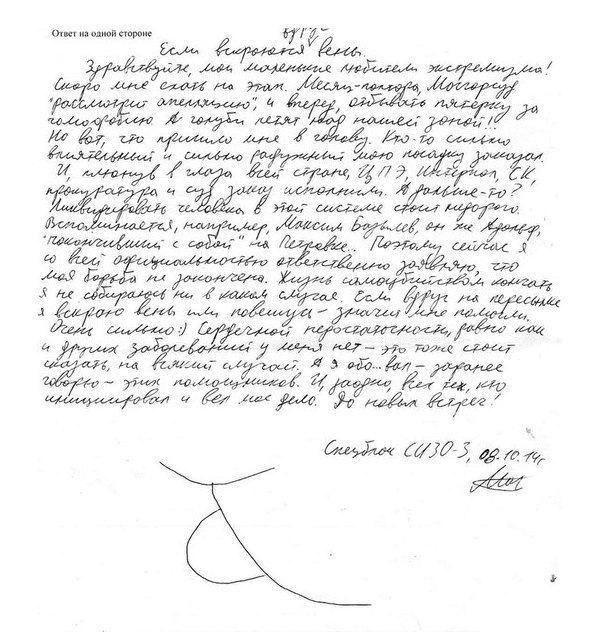 Ответ на одной стороне
вдруг
Если вскроются вены.
Здравствуйте, мои маленькие любители экстремизма!
Скоро мне ехать на этап. Месяц-полтора, Мосгорсуд
"рассмотрит апелляцию", и вперед, отбывать пятерку за
гомофобию А голуби летят над нашей зоной!!
Но вот, что пришло мне в голову. Кто-то сильно
влиятельный и сильно радужный мою посадку заказал.
И, плюнув в глаза всей стране, ЦПЭ, Интерпол, СК,
прокуратура и суд заказ исполнили. А дальше-то?
Ликвидировать человека в этой системе стоит недорого.
Вспоминается, например, Максим Базылев, он же Адольф,
"покончивший с собой" на Петровке.. Поэтому сейчас я
со всей официальностью ответственно заявляю, что
моя борьба не закончена. Жизнь самоубийством кончать
я не собираюсь ни в каком случае. Если вдруг на пересылке
я вскрою вены или повешусь – значит мне помогли.
Очень сильно:) Сердечной недостаточности, равно как
и других заболеваний у меня нет – это тоже стоит
сказать, на всякий случай. А я обо..вал – заранее
говорю – этих помощников. И, заодно, всех тех, кто
инициировал и вел мое дело. До новых встреч!
Спецблок СИЗО-3, 08.10.14г